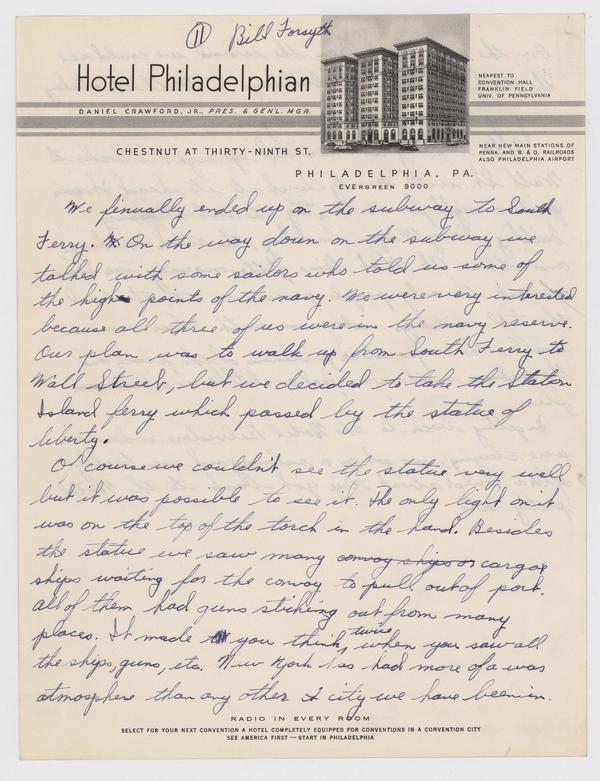 11 Bill Forsyth
Hotel Philadelphian
DANIEL CRAWFORD, JR., PRES. & GEN'L. MGR.
NEAREST TO
CONVENTION HALL
FRANKLIN FIELD
UNIV. OF PENNSYLVANIA
CHESTNUT AT THIRTY-NINTH ST.
NEAR NEW MAIN STATIONS OF
PENNA. AND B. & O. RAILROADS
ALSO PHILADELPHIA AIRPORT
PHILADELPHIA, PA.
EVERGREEN 9000
We finually ended up on the subway to South
Ferry. On the way down on the subway we
talked with some sailors who told us some of
the high points of the navy. We were very interested
because all three of us were in the navy reserve.
Our plan was to walk up from South Ferry to
Wall Street, but we decided to take the Staton
Island ferry which passed by the statue of
liberty.
Of course we couldn't see the statue very well
but it was possible to see it. The only light on it
was on the top of the torch in the hand. Besides
the statue we saw many convoy ships or cargoe
ships waiting for the convoy to pull out of port.
All of them had guns sticking out from many
places. It made you think twice, when you saw all
the ships, guns, etc. New York also had more of a war
atmosphere than any other city we have been in.
RADIO IN EVERY ROOM
SELECT FOR YOUR NEXT CONVENTION A HOTEL COMPLETELY EQUIPPED FOR CONVENTIONS IN A CONVENTION CITY
SEE AMERICA FIRST — START IN PHILADELPHIA